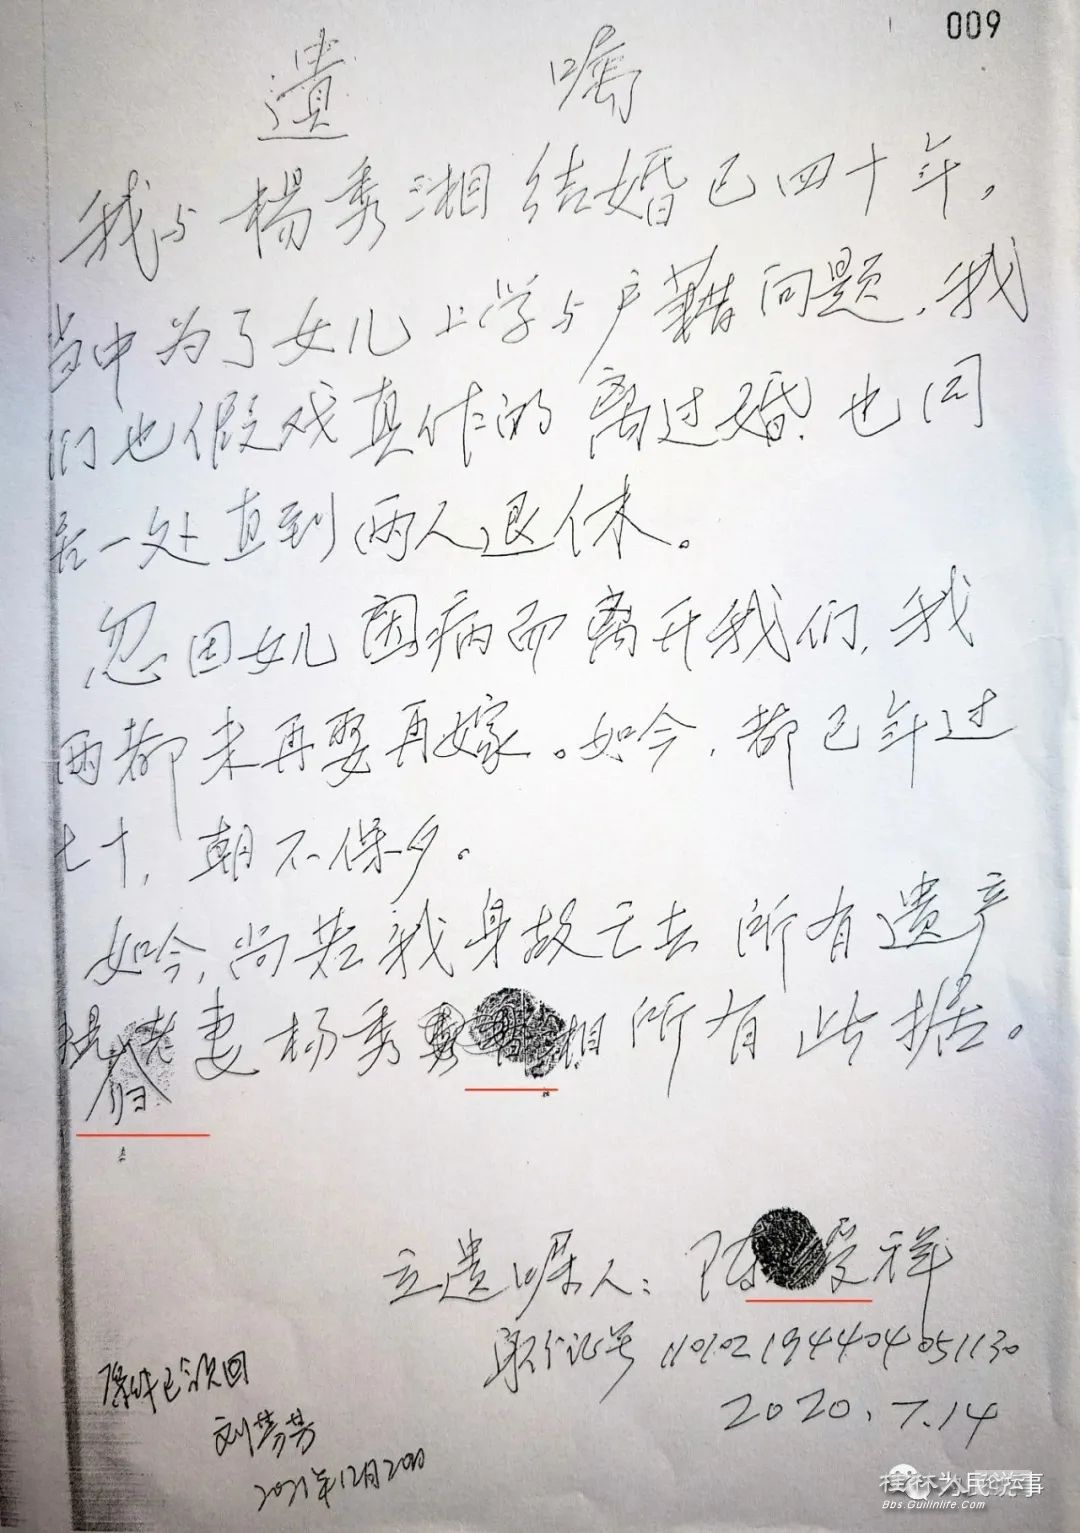 009
遗 嘱
我与杨秀湘结婚已四十年，
当中为了女儿上学与户籍问题，我
们也假戏真作的离过婚，也同
居一处直到两人退休。
忽因女儿因病而离开我们，我
两都未再娶再嫁。如今，都已年过
七十，朝不保夕。
如今，尚若我身故亡去所有遗产
老妻杨秀湘所有 此据。
归
立遗嘱人：陈绶祥
身份证号 110102194404051130
2020.7.14
原件已领回
刘芳芳
2021年12月20日
桂林为民论坛
Bbs.Guilinlife.Com